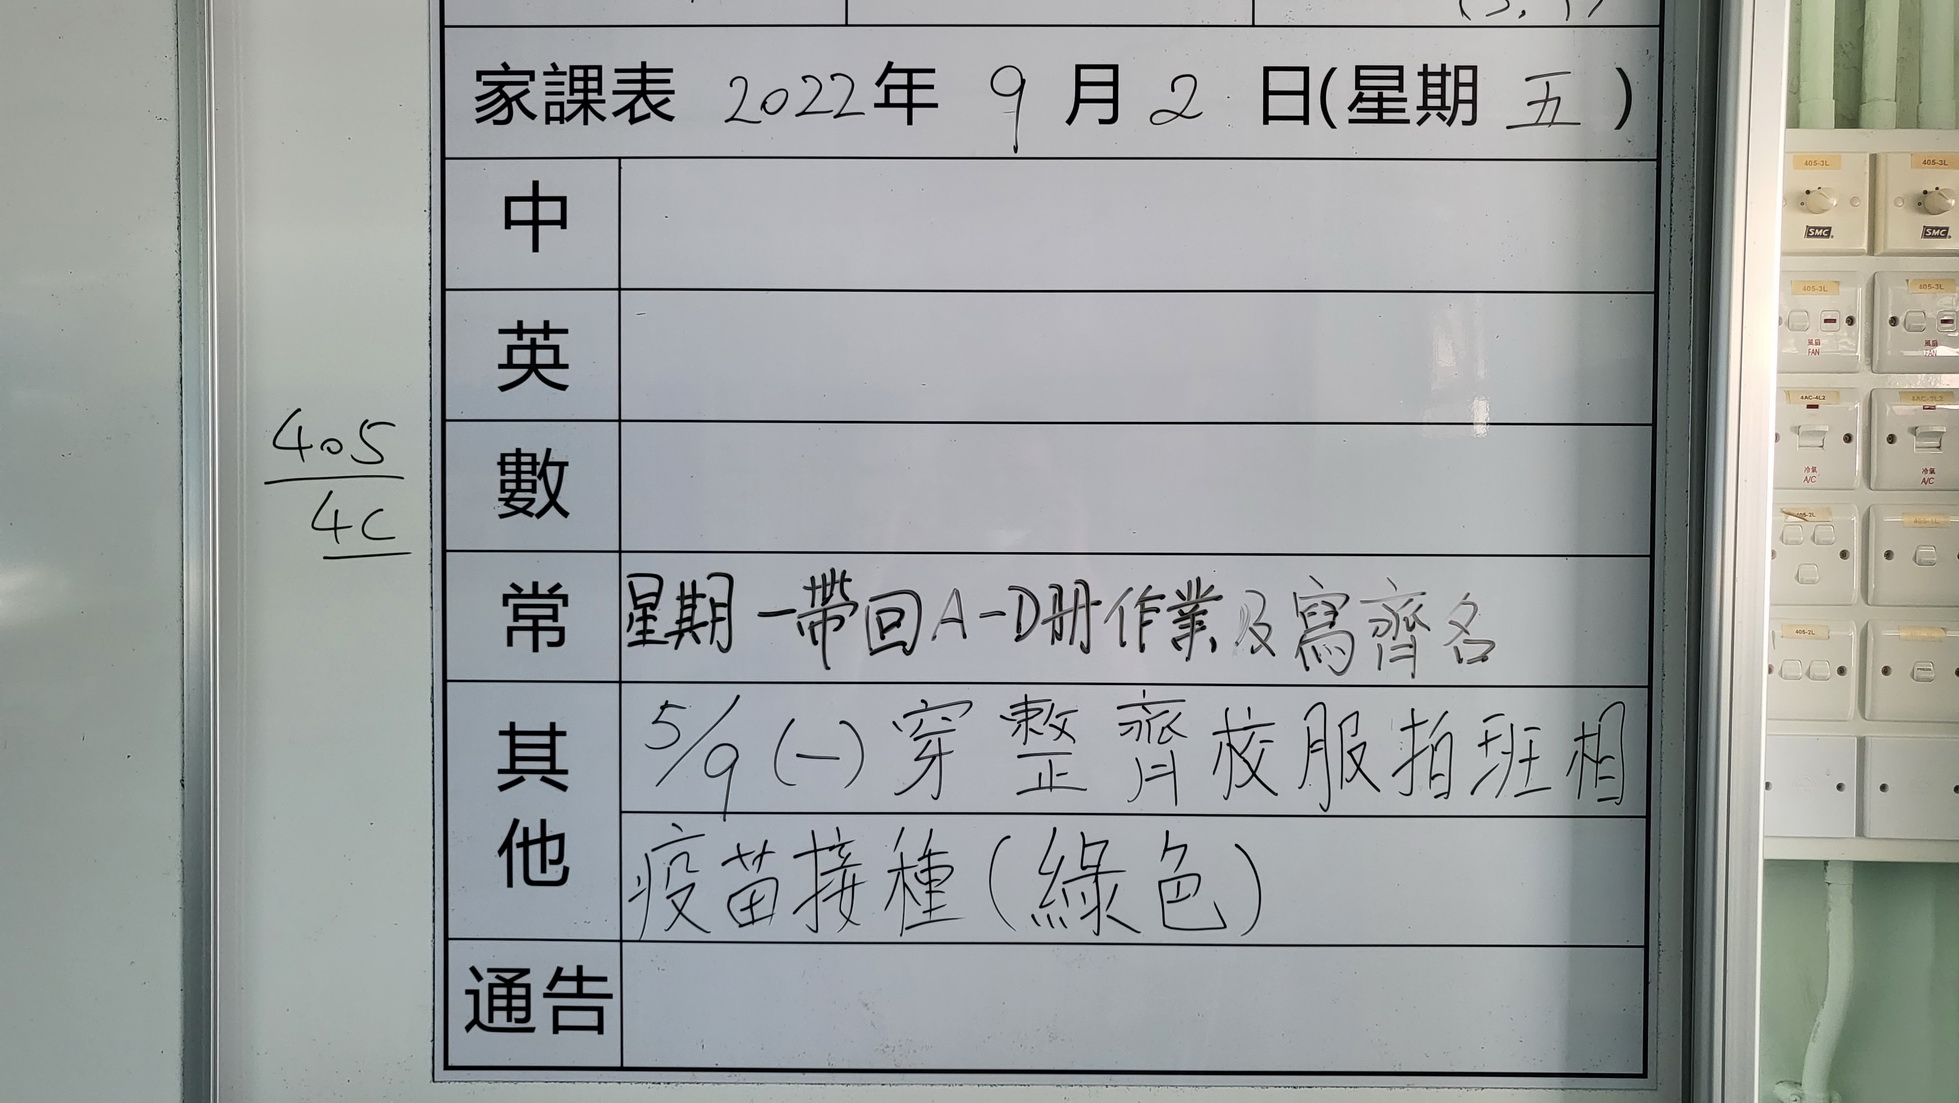 家課表 2022年 9月2日(星期五)
中
英
數
405
4C
常 星期一帶回A-D冊作業及寫齊名
其他 5/9(一)穿整齊校服拍班相
疫苗接種(綠色)
通告
405-3L
405-3L
SMC
SMC
405-3L
405-3L
風扇
FAN
風扇
FAN
4AC-4L2
冷氣
A/C
冷氣
A/C
405-2L
405-2L